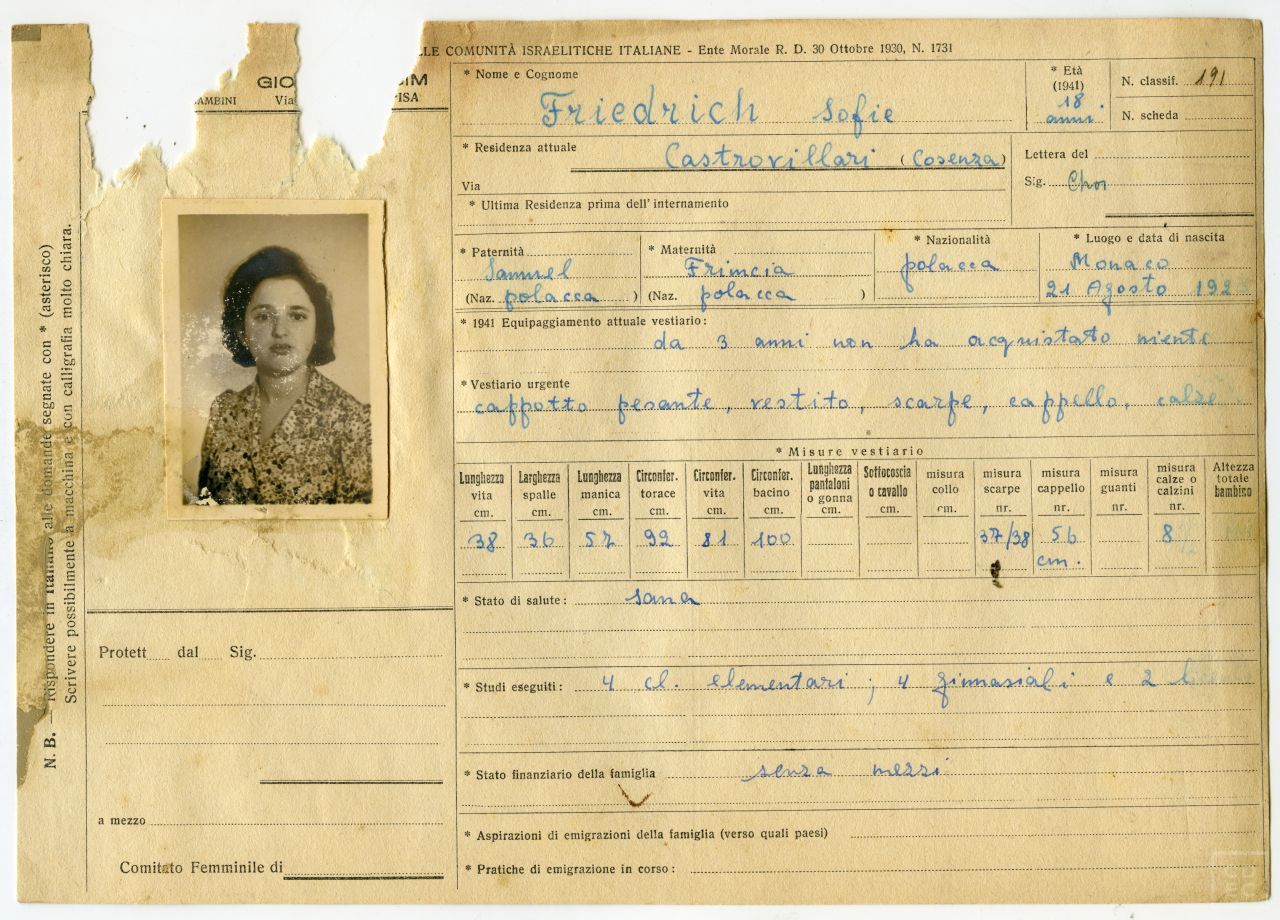 LLE COMUNITÀ ISRAELITICHE ITALIANE - Ente Morale R. D. 30 Ottobre 1930, N. 1731
AMBINI Via
PISA
N. B. — Rispondere in Italiano alle domande segnate con * (asterisco)
Scrivere possibilmente a macchina e con calligrafia molto chiara.
* Nome e Cognome
Friedrich Sofie
* Età
(1941)
18
anni
N. classif. 191
N. scheda
* Residenza attuale
Castrovillari (Cosenza)
Via
* Ultima Residenza prima dell'internamento
Lettera del
Sig.
* Paternità
Samuel
(Naz. polacca )
* Maternità
Frimcia
(Naz. polacca )
* Nazionalità
polacca
* Luogo e data di nascita
Monaco
21 Agosto 192
* 1941 Equipaggiamento attuale vestiario:
da 3 anni non ha acquistato niente
* Vestiario urgente
cappotto pesante, vestito, scarpe, cappello, calze
* Misure vestiario
Lunghezza vita cm. 38
Larghezza spalle cm. 36
Lunghezza manica cm. 57
Circonfer. torace cm. 92
Circonfer. vita cm. 81
Circonfer. bacino cm. 100
Lunghezza pantaloni o gonna cm.
Sottocoscia o cavallo cm.
misura collo cm.
misura scarpe nr. 37/38
misura cappello nr. 56 cm.
misura guanti nr.
misura calze o calzini nr. 8
Altezza totale bambino
* Stato di salute: sana
* Studi eseguiti: 4 cl. elementari; 4 ginnasiali e 2 l
* Stato finanziario della famiglia senza mezzi
* Aspirazioni di emigrazioni della famiglia (verso quali paesi)
* Pratiche di emigrazione in corso:
Protett dal Sig.
a mezzo
Comitato Femminile di